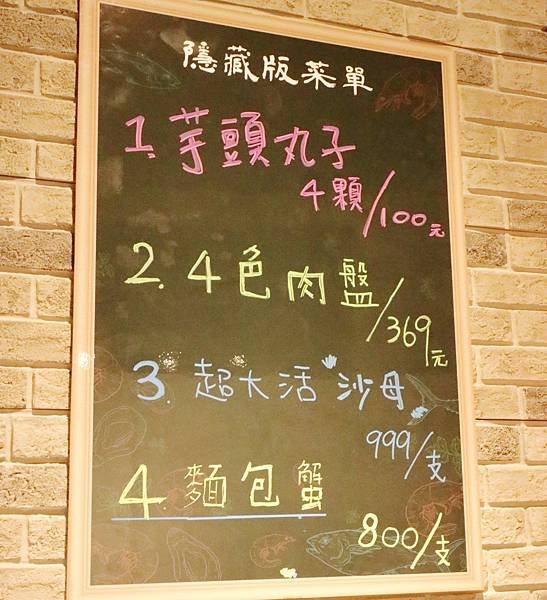 隱藏版菜單
1.芋頭丸子
4顆/100元
2.4色肉盤
/369元
3.超大活"沙母"
999/支
4.麵包蟹
800/支